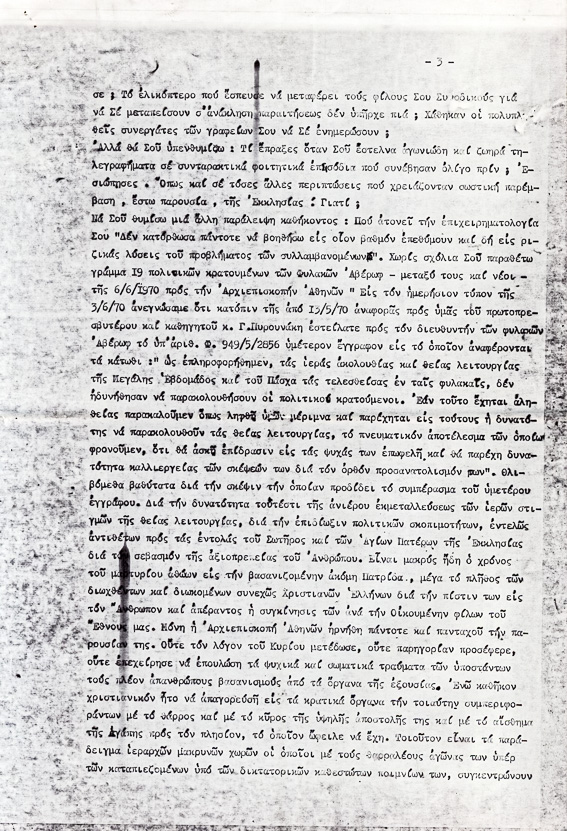 - 3 -
σε ; Τό ἑλικόπτερο πού ἔσπευσε νά μεταφέρει τούς φίλους Σου Συνοδικούς γιά
νά Σέ μεταπείσουν σ'ἀνάκληση παραιτήσεως δέν ὑπῆρχε πιά ; Χάθηκαν οἱ πολυπλ
θεῖς συνεργάτες τῶν γραφείων Σου νά Σέ ἐνημερώσουν ;
Ἀλλά θά Σοῦ ὑπενθυμίσω : Τί ἔπραξες ὅταν Σοῦ ἔστελνα ἀγωνιώδη καί ζωηρά τη-
λεγραφήματα σέ συνταρακτικά φοιτητικά ἐπεισόδια πού συνέβησαν ὀλίγο πρίν ; Ἐ-
σιώπησες . Ὅπως καί σέ τόσες ἄλλες περιπτώσεις πού χρειάζονταν σωστική παρέμ-
βαση , ἔστω παρουσία , τῆς Ἐκκλησίας . Γιατί ;
Νά Σοῦ θυμίσω μιά ἄλλη παράλειψη καθήκοντος : Πού ἀτονεῖ τήν ἐπιχειρηματολογία
Σου "Δέν κατόρθωσα πάντοτε νά βοηθήσω εἰς οἷον βαθμόν ἐπεθύμουν καί δή εἰς ρι-
ζικάς λύσεις τοῦ προβλήματος τῶν συλλαμβανομένων". Χωρίς σχόλια Σοῦ παραθέτω
γράμμα 19 πολιτικῶν κρατουμένων τῶν Φυλακῶν Ἀβέρωφ - μεταξύ τους καί νέοι -
τῆς 6/6/1970 πρός τήν Ἀρχιεπισκοπήν Ἀθηνῶν " Εἰς τόν ἡμερήσιον τύπον τῆς
3/6/70 ἀνεγνώσαμε ὅτι κατόπιν τῆς ἀπό 13/5/70 ἀναφορᾶς πρός ὑμᾶς τοῦ πρωτοπρε-
σβυτέρου καί καθηγητοῦ κ. Γ.Πυρουνάκη ἐστείλατε πρός τόν διευθυντήν τῶν φυλακῶν
Ἀβέρωφ τό ὑπ'ἀριθ. Φ. 949/5/2856 ὑμέτερον ἔγγραφον εἰς τό ὁποῖον ἀναφέρονται
τά κάτωθι :" Ὡς ἐπληροφορήθημεν, τάς ἱεράς ἀκολουθίας καί θείας λειτουργίας
τῆς Μεγάλης Ἑβδομάδος καί τοῦ Πάσχα τάς τελεσθείσας ἐν ταῖς φυλακαῖς, δέν
ἠδυνήθησαν νά παρακολουθήσουν οἱ πολιτικοί κρατούμενοι. Ἐάν τοῦτο ἔχηται ἀλη-
θείας παρακαλοῦμεν ὅπως ληφθῇ μέριμνα καί παρέχηται εἰς τούτους ἡ δυνατό-
της νά παρακολουθοῦν τάς θείας λειτουργίας, τό πνευματικόν ἀποτέλεσμα τῶν ὁποίων
φρονοῦμεν, ὅτι θά ἀσκῇ ἐπίδρασιν εἰς τάς ψυχάς των ἐπωφελῆ καί θά παρέχη δυνα-
τότητα καλλιεργείας τῶν σκέψεών των διά τόν ὀρθόν προσανατολισμόν των". Θλι-
βόμεθα βαθύτατα διά τήν σκέψιν τήν ὁποίαν προδίδει τό συμπέρασμα τοῦ ὑμετέρου
ἐγγράφου. Διά τήν δυνατότητα τουτέστι τῆς ἀνιέρου ἐκμεταλλεύσεως τῶν ἱερῶν στι-
γμῶν τῆς θείας λειτουργίας, διά τήν ἐπιδίωξιν πολιτικῶν σκοπιμοτήτων, ἐντελῶς
ἀντιθέτων πρός τάς ἐντολάς τοῦ Σωτῆρος καί τῶν Ἁγίων Πατέρων τῆς Ἐκκλησίας
διά τόν σεβασμόν τῆς ἀξιοπρεπείας τοῦ Ἀνθρώπου. Εἶναι μακρός ἤδη ὁ χρόνος
τοῦ μαρτυρίου ἀθώων εἰς τήν βασανιζομένην ἀκόμη Πατρίδα., μέγα τό πλῆθος τῶν
διωχθέντων καί διωκομένων συνεχῶς Χριστιανῶν Ἑλλήνων διά τήν πίστιν των εἰς
τόν Ἄνθρωπον καί ἀπέραντος ἡ συγκίνησις τῶν ἀνά τήν Οἰκουμένην φίλων τοῦ
Ἔθνους μας. Μόνη ἡ Ἀρχιεπισκοπή Ἀθηνῶν ἠρνήθη πάντοτε καί πανταχοῦ τήν πα-
ρουσίαν της. Οὔτε τόν λόγον τοῦ Κυρίου μετέδωσε, οὔτε παρηγορίαν προσέφερε,
οὔτε ἐπεχείρησε νά ἐπουλώση τά ψυχικά καί σωματικά τραύματα τῶν ὑποστάντων
τούς πλέον ἀπανθρώπους βασανισμούς ἀπό τά ὄργανα τῆς ἐξουσίας. Ἐνῶ καθῆκον
χριστιανικόν ἦτο νά ἀπαγορεύση εἰς τά κρατικά ὄργανα τήν τοιαύτην συμπεριφο-
ράντων μέ τό θάρρος καί μέ τό κῦρος τῆς ὑψηλῆς ἀποστολῆς της καί μέ τό αἴσθημα
τῆς Ἀγάπης πρός τόν πλησίον, τό ὁποῖον ὤφειλε νά ἔχη. Τοιοῦτον εἶναι τό παρά-
δειγμα ἱεραρχῶν μακρυνῶν χωρῶν οἱ ὁποῖοι μέ τούς θαρραλέους ἀγῶνας των ὑπέρ
τῶν καταπιεζομένων ὑπό τῶν δικτατορικῶν καθεστώτων ποιμνίων των, συγκεντρώνουν